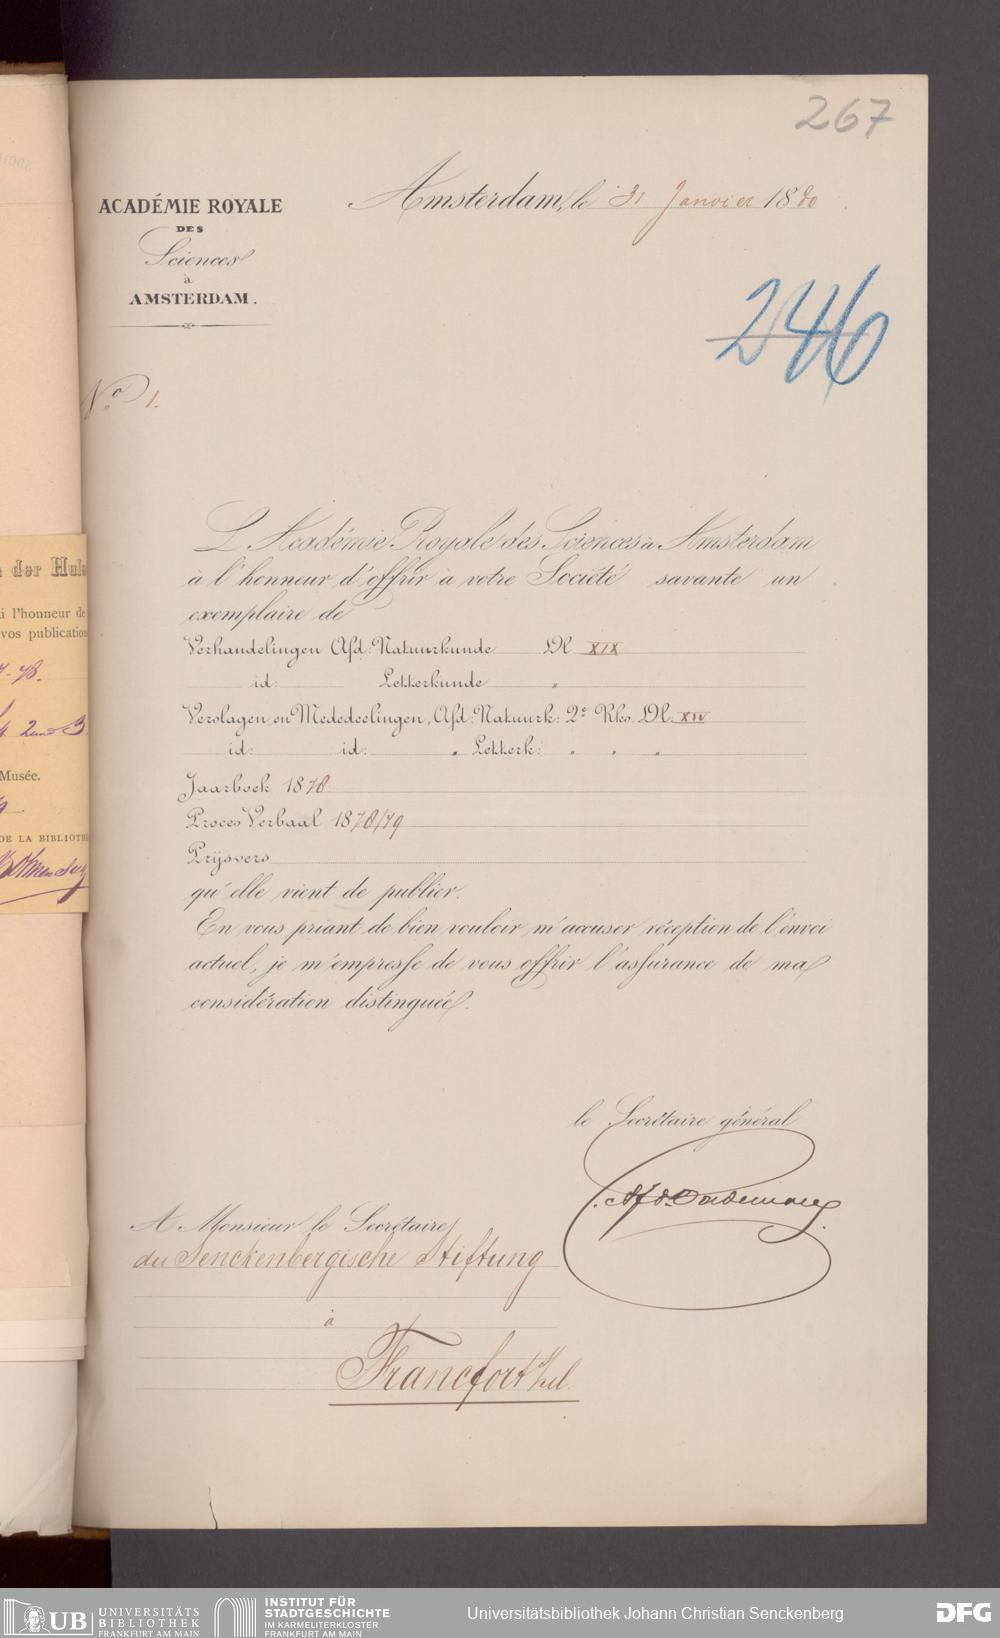 267
Amsterdam, le 31 Janvier 1880
ACADÉMIE ROYALE
DES
Sciences
à
AMSTERDAM.
246
No 1.
L'Académie Royale des Sciences à Amsterdam
à l'honneur d'offrir a votre Société savante un
exemplaire de
Verhandelingen Afd: Natuurkunde Dl XIX
id: Letterkunde "
Verslagen en Mededeelingen, Afd: Natuurk: 2e Rks. Dl. XIV
id: id: " Letterk: " " "
Jaarboek 1878
Proces Verbaal 1878/79
Prijsvers
qu'elle vient de publier.
En vous priant de bien vouloir m'accuser réception de l'envoi
actuel, je m'empresse de vous offrir l'assurance de ma
considération distinguée.
le Secrétaire général
A Monsieur le Secrétaire
du Senckenbergische Stiftung
à
Francfort
n der Hul
i l'honneur de
vos publication
Musée.
DE LA BIBLIOTH
UB UNIVERSITÄTS
BIBLIOTHEK
FRANKFURT AM MAIN
INSTITUT FÜR
STADTGESCHICHTE
IM KARMELITERKLOSTER
FRANKFURT AM MAIN
Universitätsbibliothek Johann Christian Senckenberg
DFG